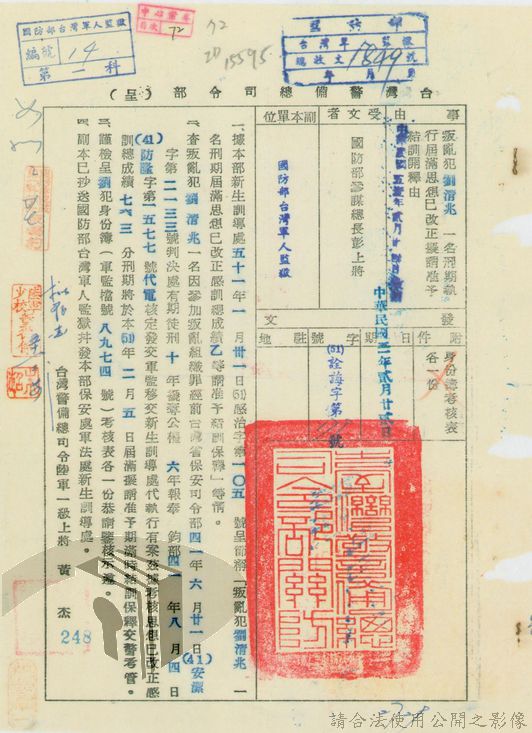 國防部台灣軍人監獄
編號 14
第一科
72
72
20 15595
監獄
台灣軍
編收文 1899 號
年 月 日
台灣警備總司令部（呈）
事由
叛亂犯劉清兆一名刑期執行屆滿思想已改正擬請准予結訓開釋由
受文者
國防部參謀總長彭上將
副本單位
國防部台灣軍人監獄
附件
身份簿考核表各一份
發文
日期
中華民國五十一年貳月廿貳日
字號
(51)詮誨字第
號
駐地
一、據本部新生訓導處五十一年一月卅一日(51)感治字第一〇五號呈節稱「叛亂犯劉清兆一名刑期屆滿思想已改正感訓總成績乙等請准予結訓保釋」等情。
二、查叛亂犯劉清兆一名因參加叛亂組織罪經前台灣省保安司令部四一年六月廿一日(41)安潔字第二一三三號判決處有期徒刑十年褫奪公權六年報奉鈞部四一年八月四日(41)防隆字第一五七七號代電核定發交軍監移交新生訓導處代執行有案茲據考核思想已改正感訓總成績七六三分刑期將於本(51)年二月五日屆滿擬請准予期滿時結訓保釋交警考管。
三、謹檢呈劉犯身份簿(軍監檔號八九七四號)考核表各一份恭請鑒核示遵。
四、副本已抄送國防部台灣軍人監獄幷發本部保安處軍法處新生訓導處。
台灣警備總司令陸軍一級上將 黃杰
248
請合法使用公開之影像